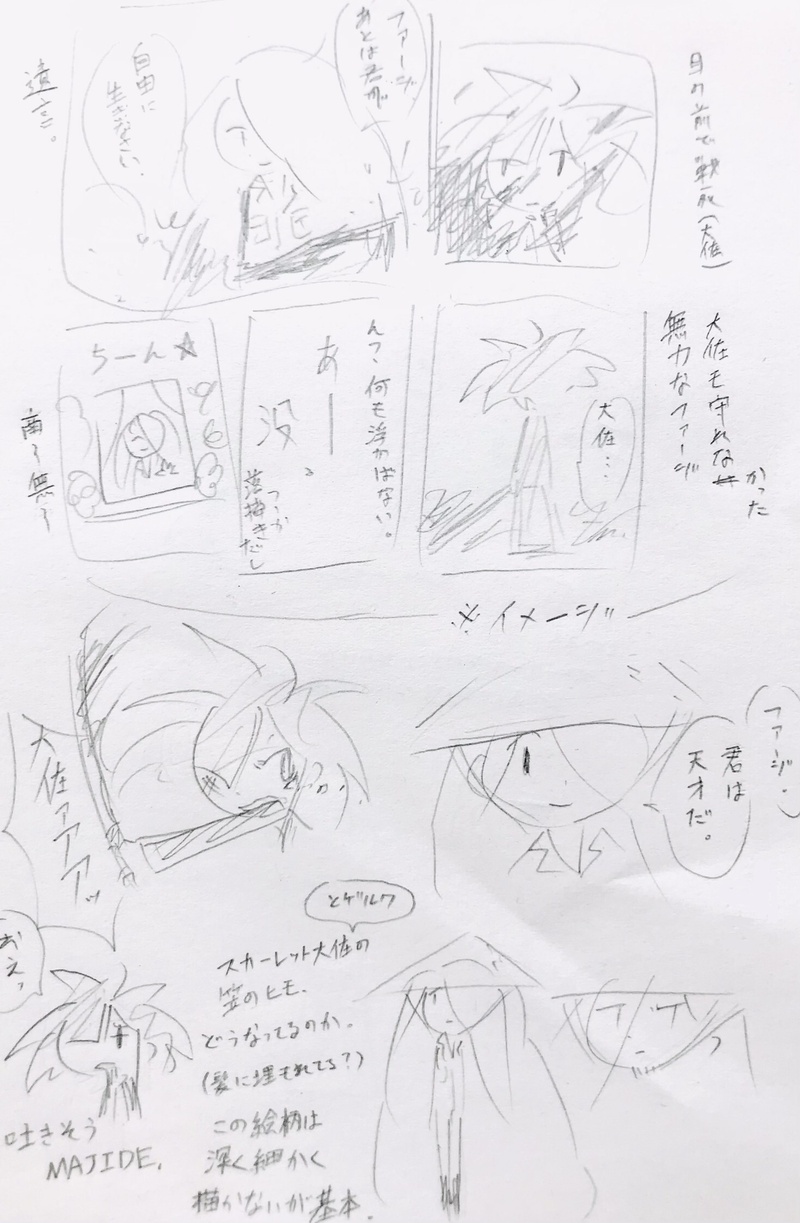 目の前で戦死(大佐)
ファージ
あとは君が
自由に
生きなさい。
遠さ。
大佐も守れな
かった
無力なファージ
大佐…
んー、何も浮かばない。
あー
没。
つーか
落描きだし
ちーん☆
南〜無〜
※イメージ
ファージ。
君は
天才だ。
大佐ァァァッ
おえっ
吐きそう
MAJIDE.
とゲルク
スカーレット大佐の
笠のヒモ、
どうなってるのか。
(髪に埋もれてる?)
この絵柄は
深く細かく
描かないが基本。